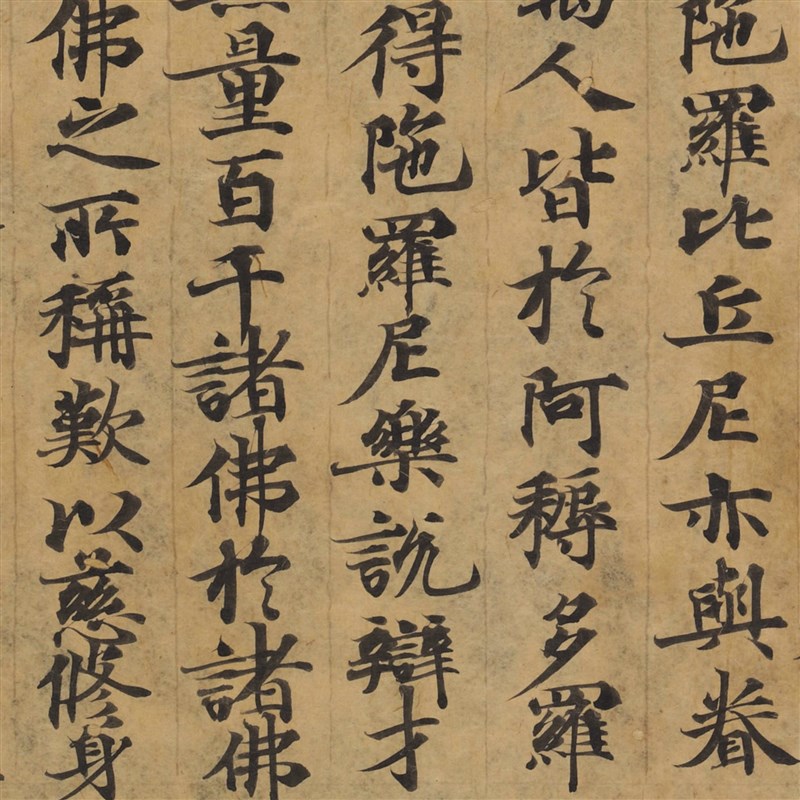 陁羅比丘尼亦與眷
人皆於阿耨多羅
得陁羅尼樂說辯才
量百千諸佛於諸佛
佛之所稱歎以慈修身